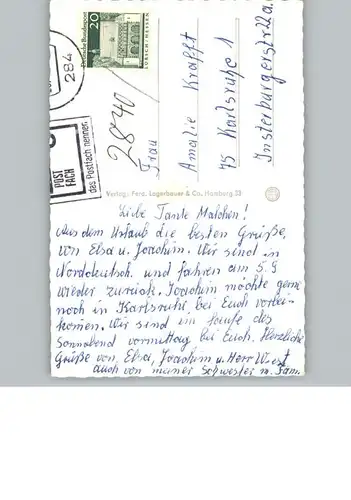 Deutsche Bundespost
20
LORSCH/HESSEN
284
POST
FACH
das Postfach nennen.
2840
Frau
Amalie Krafft
75 Karlsruhe 1
Insterburgerstr 22a
Verlag: Ferd. Lagerbauer & Co., Hamburg 23
Liebe Tante Malchen!
Aus dem Urlaub die besten Grüße,
von Elsa u. Joachim. Wir sind in
Norddeutsch. und fahren am 5.9
wieder zurück. Joachim möchte gern
noch in Karlsruhe bei Euch vorbei-
komen. Wir sind im Laufe des
Sonnabend vormittag bei Euch. Herzliche
Grüße von, Elsa, Joachim u. Herr Wiest
auch von meiner Schwester m. Fam.